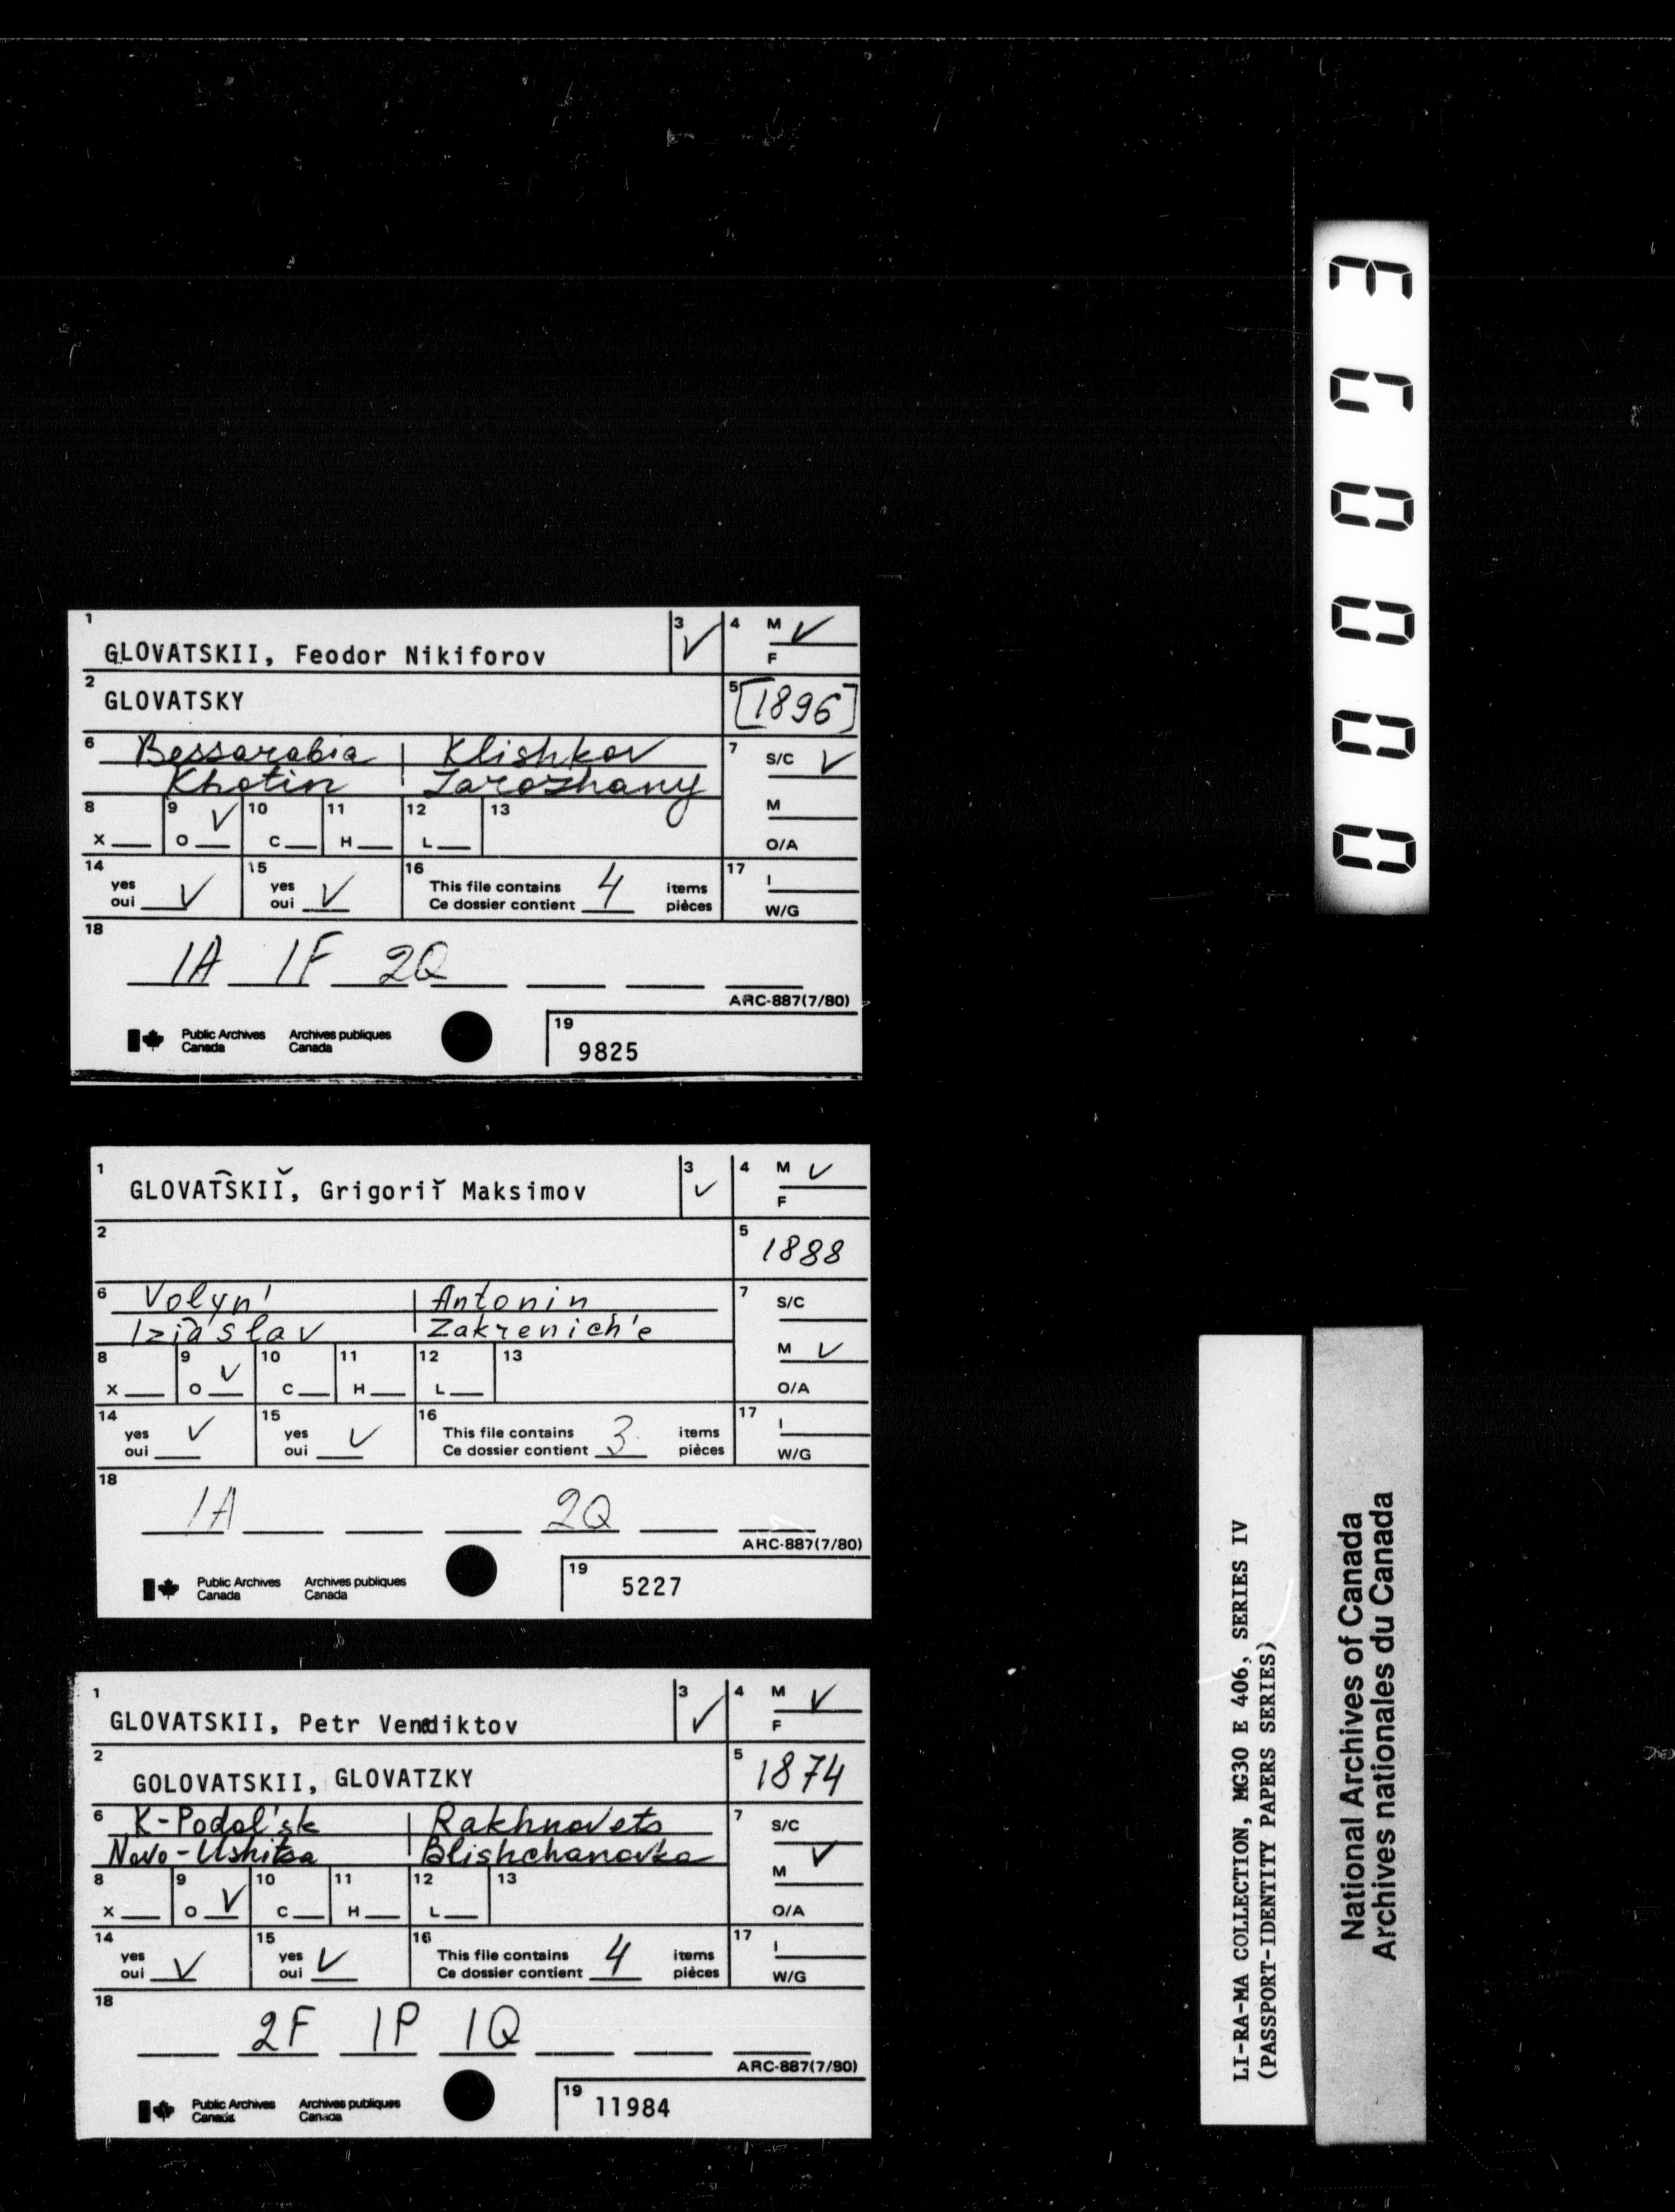 1 GLOVATSKII, Feodor Nikiforov 3 ✓ 4 M ✓ F
2 GLOVATSKY 5 [1896]
6 Bessarabia | Klishkov 7 S/C ✓
Khotin | Zarozhany M
8 X 9 O ✓ 10 C 11 H 12 L 13 O/A
14 yes oui ✓ 15 yes oui ✓ 16 This file contains 4 items 17 I
Ce dossier contient pièces W/G
18 1A 1F 2Q
ARC-887(7/80)
Public Archives Canada Archives publiques Canada 19 9825
1 GLOVAT͡SKIĬ, Grigoriĭ Maksimov 3 ✓ 4 M ✓ F
2 5 1888
6 Volyn' | Antonin 7 S/C
Izi͡aslav | Zakrenich'e M ✓
8 X 9 O ✓ 10 C 11 H 12 L 13 O/A
14 yes oui ✓ 15 yes oui ✓ 16 This file contains 3 items 17 I
Ce dossier contient pièces W/G
18 1A 2Q
ARC-887(7/80)
Public Archives Canada Archives publiques Canada 19 5227
1 GLOVATSKII, Petr Venediktov 3 ✓ 4 M ✓ F
2 GOLOVATSKII, GLOVATZKY 5 1874
6 K-Podol'sk | Rakhnovets 7 S/C
Novo-Ushitsa | Blishchanovka M ✓
8 X 9 O ✓ 10 C 11 H 12 L 13 O/A
14 yes oui ✓ 15 yes oui ✓ 16 This file contains 4 items 17 I
Ce dossier contient pièces W/G
18 2F 1P 1Q
ARC-887(7/80)
Public Archives Canada Archives publiques Canada 19 11984
000053
LI-RA-MA COLLECTION, MG30 E 406, SERIES IV
(PASSPORT-IDENTITY PAPERS SERIES)
National Archives of Canada
Archives nationales du Canada